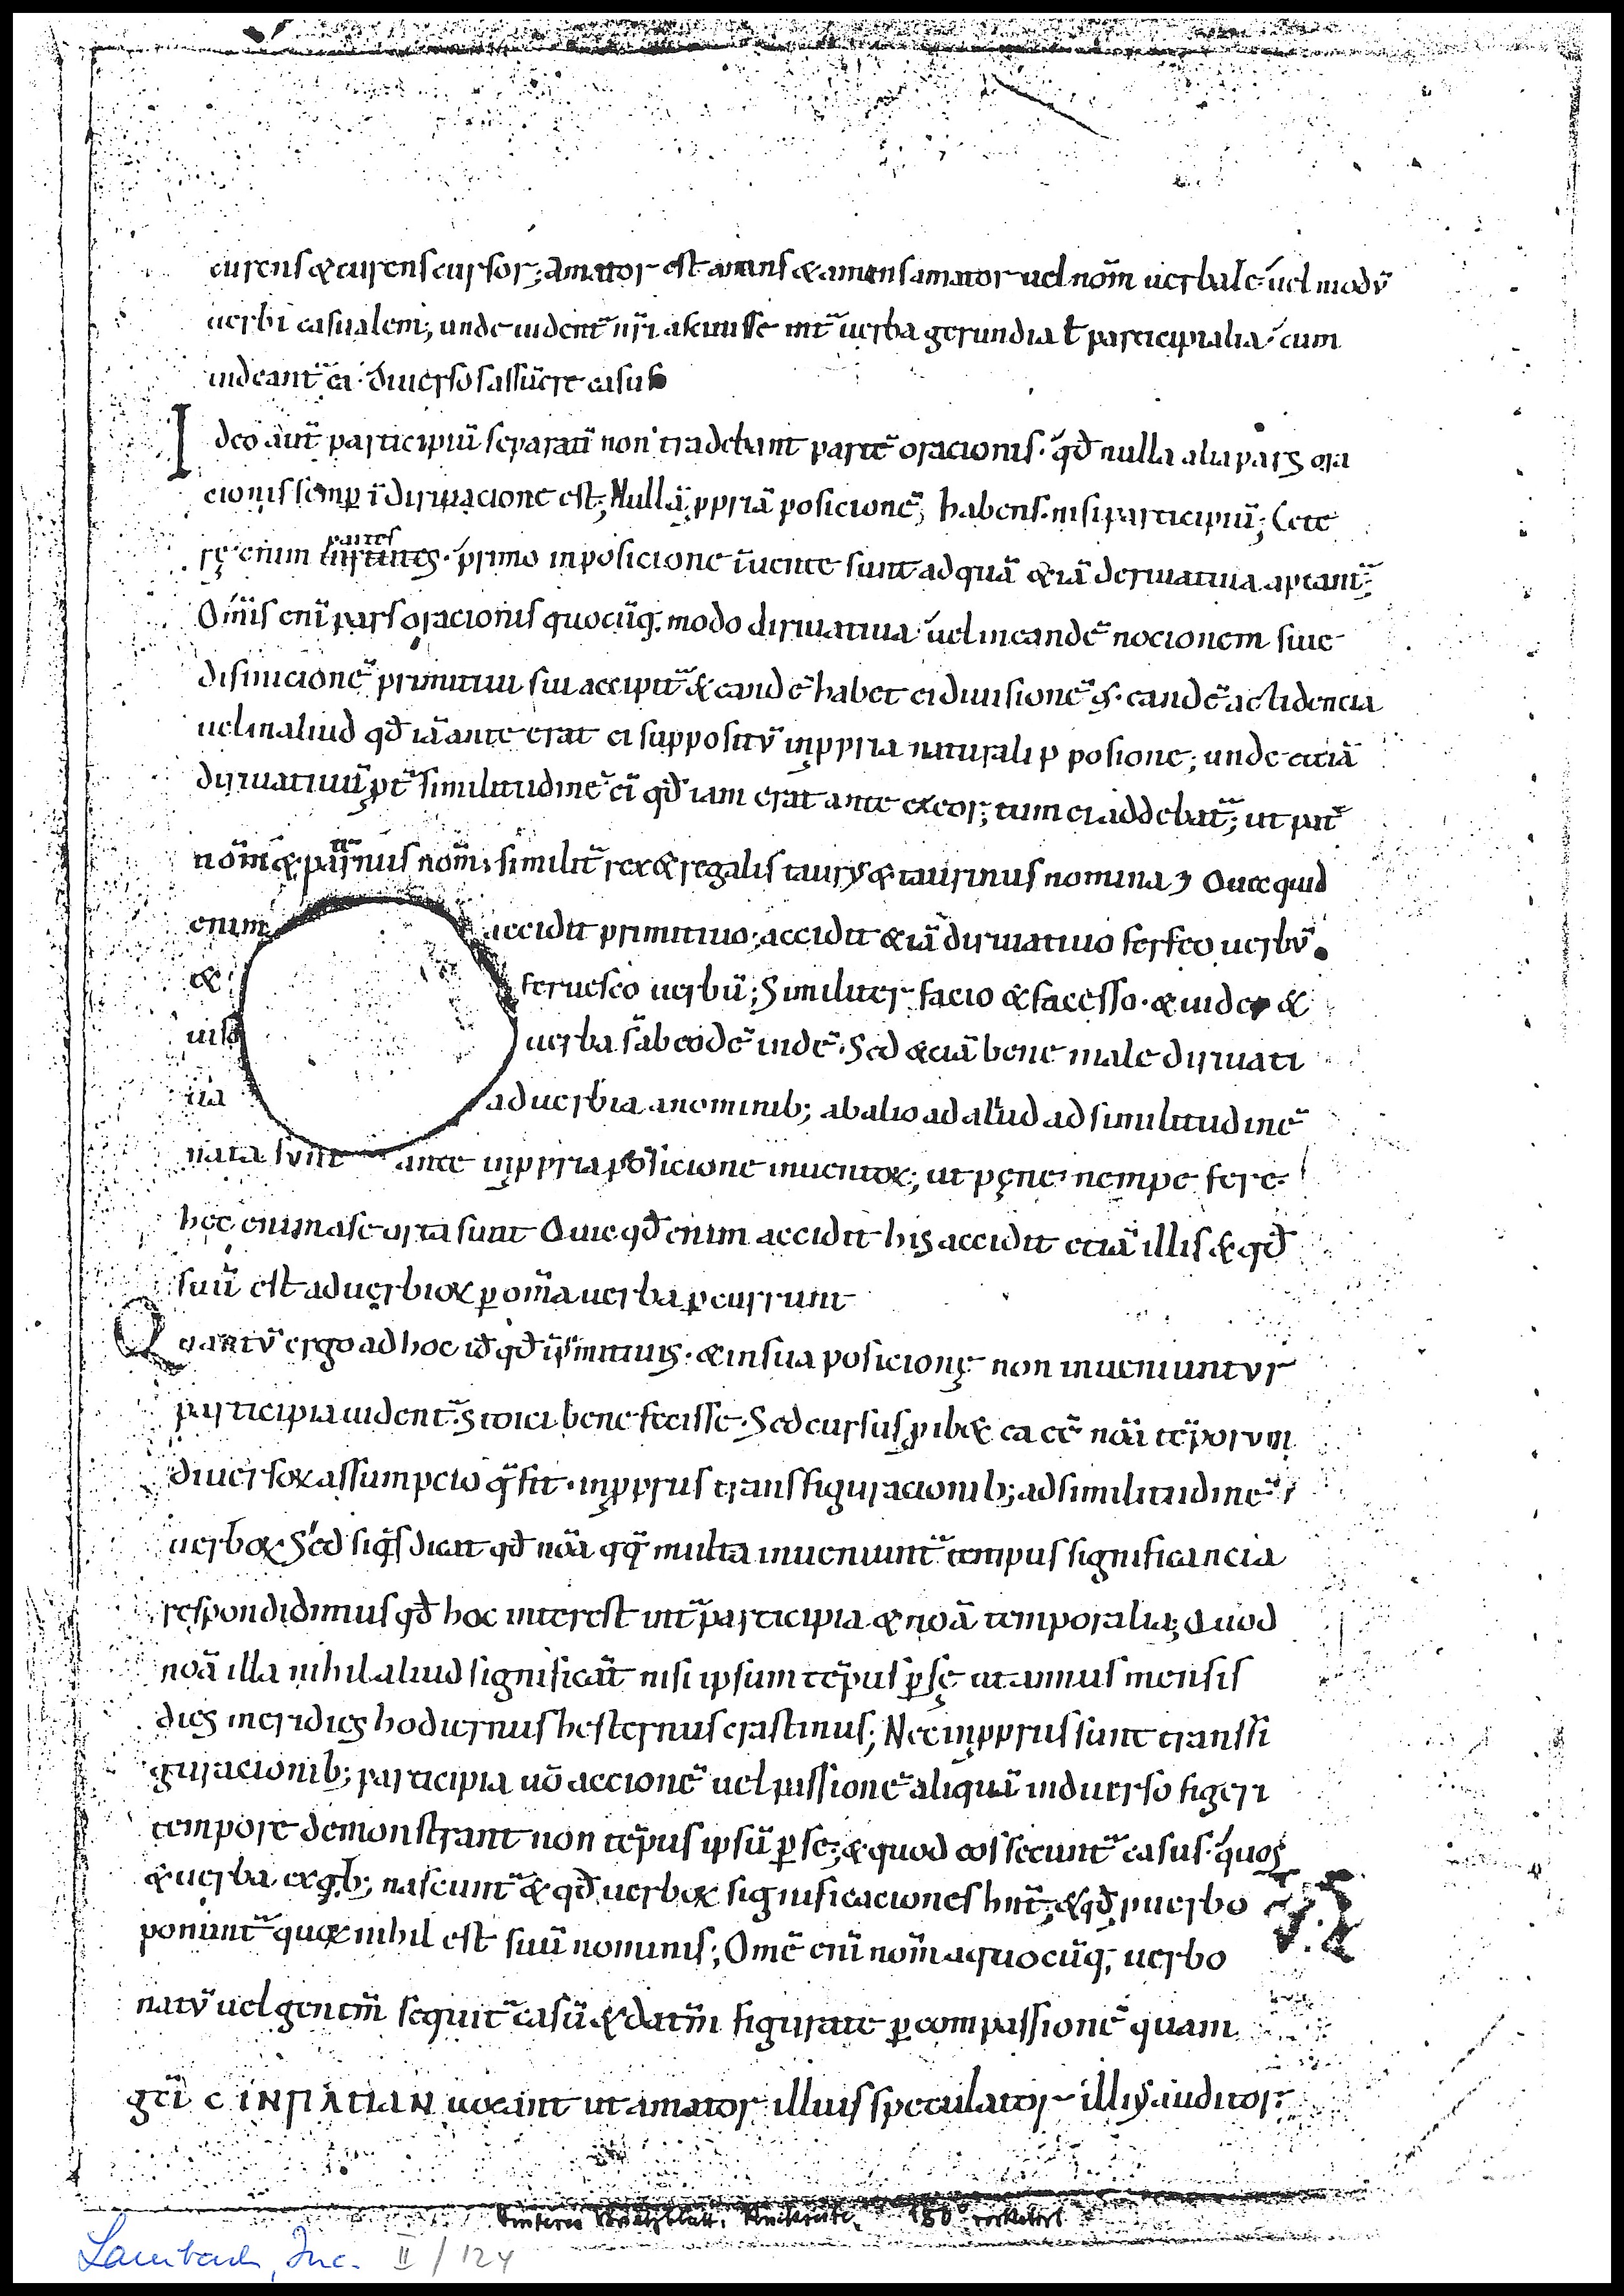 curens & curens cursor; Amator est amans & amans amator uel nom̄ uerbale uel modū
uerbi casualem; unde uident̄ nr̄i asciuisse int̄ uerba gerundia ł participialia cum
uideant̄ ea diuersos assūere casus
Ideo aut̄ participiū separatā non tradebant partē oracionis · qd̄ nulla alia pars ora
cionis semp̱ ī diriuacione est; Nullā ꝓpriā posicionē habens · nisi participiū; Cete
rę enim partes primo in posicione īuente sunt ad quā & iā deriuatiua aptant̄;
Om̄is enī pars oracionis quocūq; modo diriuatiua uel in eandē nocionem siue
difinicionē primitiui sui accipit̄ & eandē habet ei diuisionē eandē accidencia
uel in aliud qd̄ iā ante erat ei suppositū in ꝓpria naturali posione; unde etiā
diriuatiuū ꝓpt̄ similitudinē eī qd̄ iam erat ante ex eor; tum ei addebat̄; ut pat̄
nom̄ & pat̄nus nom̄; similit̄ rex & regalis taurus & taurinus nomina Quicquid
enim accidit primitiuo; accidit & iā diriuatiuo ferfeo uerbū
& feruesco uerbū; Similiter facio & facesso · & uideo &
uiso uerba s̄ ab eodē indē · Sed & ciā bene male diriuati
ua aduerbia a nominib; ab alio ad aliud ad similitudinē
nata sunt ante in ꝓpria posicione inuentoꝝ; ut pęne nempe fere
hec enim a se orta sunt Quicqd̄ enim accidit his accidit etiā illis & qd̄
suū est aduerbioꝝ ꝑ om̄a uerba ꝑcurrunt
Quantū ergo ad hoc id qd̄ in sua posicionę non inueniuntur
participia uident̄ Stoici bene fecisse · Sed cursus ꝓhibet ea eē nōa tēporum
diuersoꝝ assumpcio q̄ fit · in ꝓpriis transfiguracionib; ad similitudinē
uerboꝝ Sed siq̄s dicat qd̄ nōa qq̄ multa inueniunt̄ tempus significancia
respondidimus qd̄ hoc interest int̄ participia & nōa temporalia; Quod
nōa illa nihil aliud significāt nisi ipsum tēpus ꝑ sę ut annus mensis
dies meridies hodiernus hesternus crastinus; Nec in ꝓpriis sunt transfi
guracionib; participia uō accionē uel passionē aliquā in diuerso figeri
tempore demonstrant non tēpus ipsū ꝑ se; & quod eos secunt̄ casus · quos
& uerba ex qb; nascunt̄ & qd̄ uerboꝝ significaciones hn̄t; & qd̄ ꝓ uerbo
ponunt̄ quoꝝ nihil est suū nominis; Omē enī nom̄ a quocūq; uerbo
natū uel genetm̄ sequit̄ casū & datm̄ figurate ꝑ compassionē quam
gci CINΠΛΤΙΑΝ uocant ut amator illius speculator illius auditor
Hinteres Vorsatzblatt, Rückseite, 180°
Laubach, Inc. II / 124